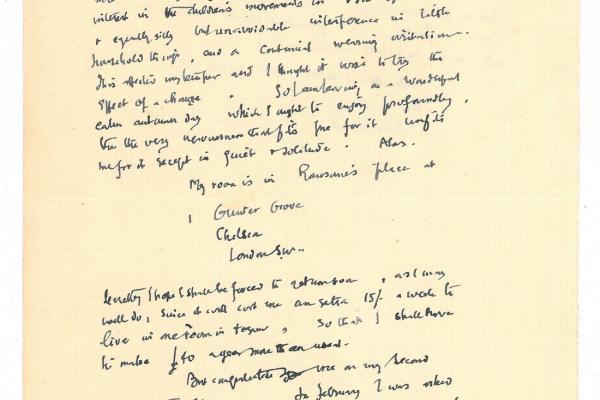 interest in the children's movements in
& equally silly but unavoidable interference in little
household things, and a continual wearing irritation.
This affected my temper and I thought it wise to try the
effect of a change. So I am leaving on a wonderful
calm autumn day which I ought to enjoy profoundly,
but the very nervousness that fits me for it unfits
me for it except in quiet & solitude. Alas.
My room is in Ransome's place at
1 Gunter Grove
Chelsea
London S.W..
Secretly I hope I shall be forced to return soon, as I may
well do, since it will cost me an extra 15/- a week to
live in one room in town, so that I shall have
to make £40 a year more than usual.
But congratulate me on my second
In February I was asked